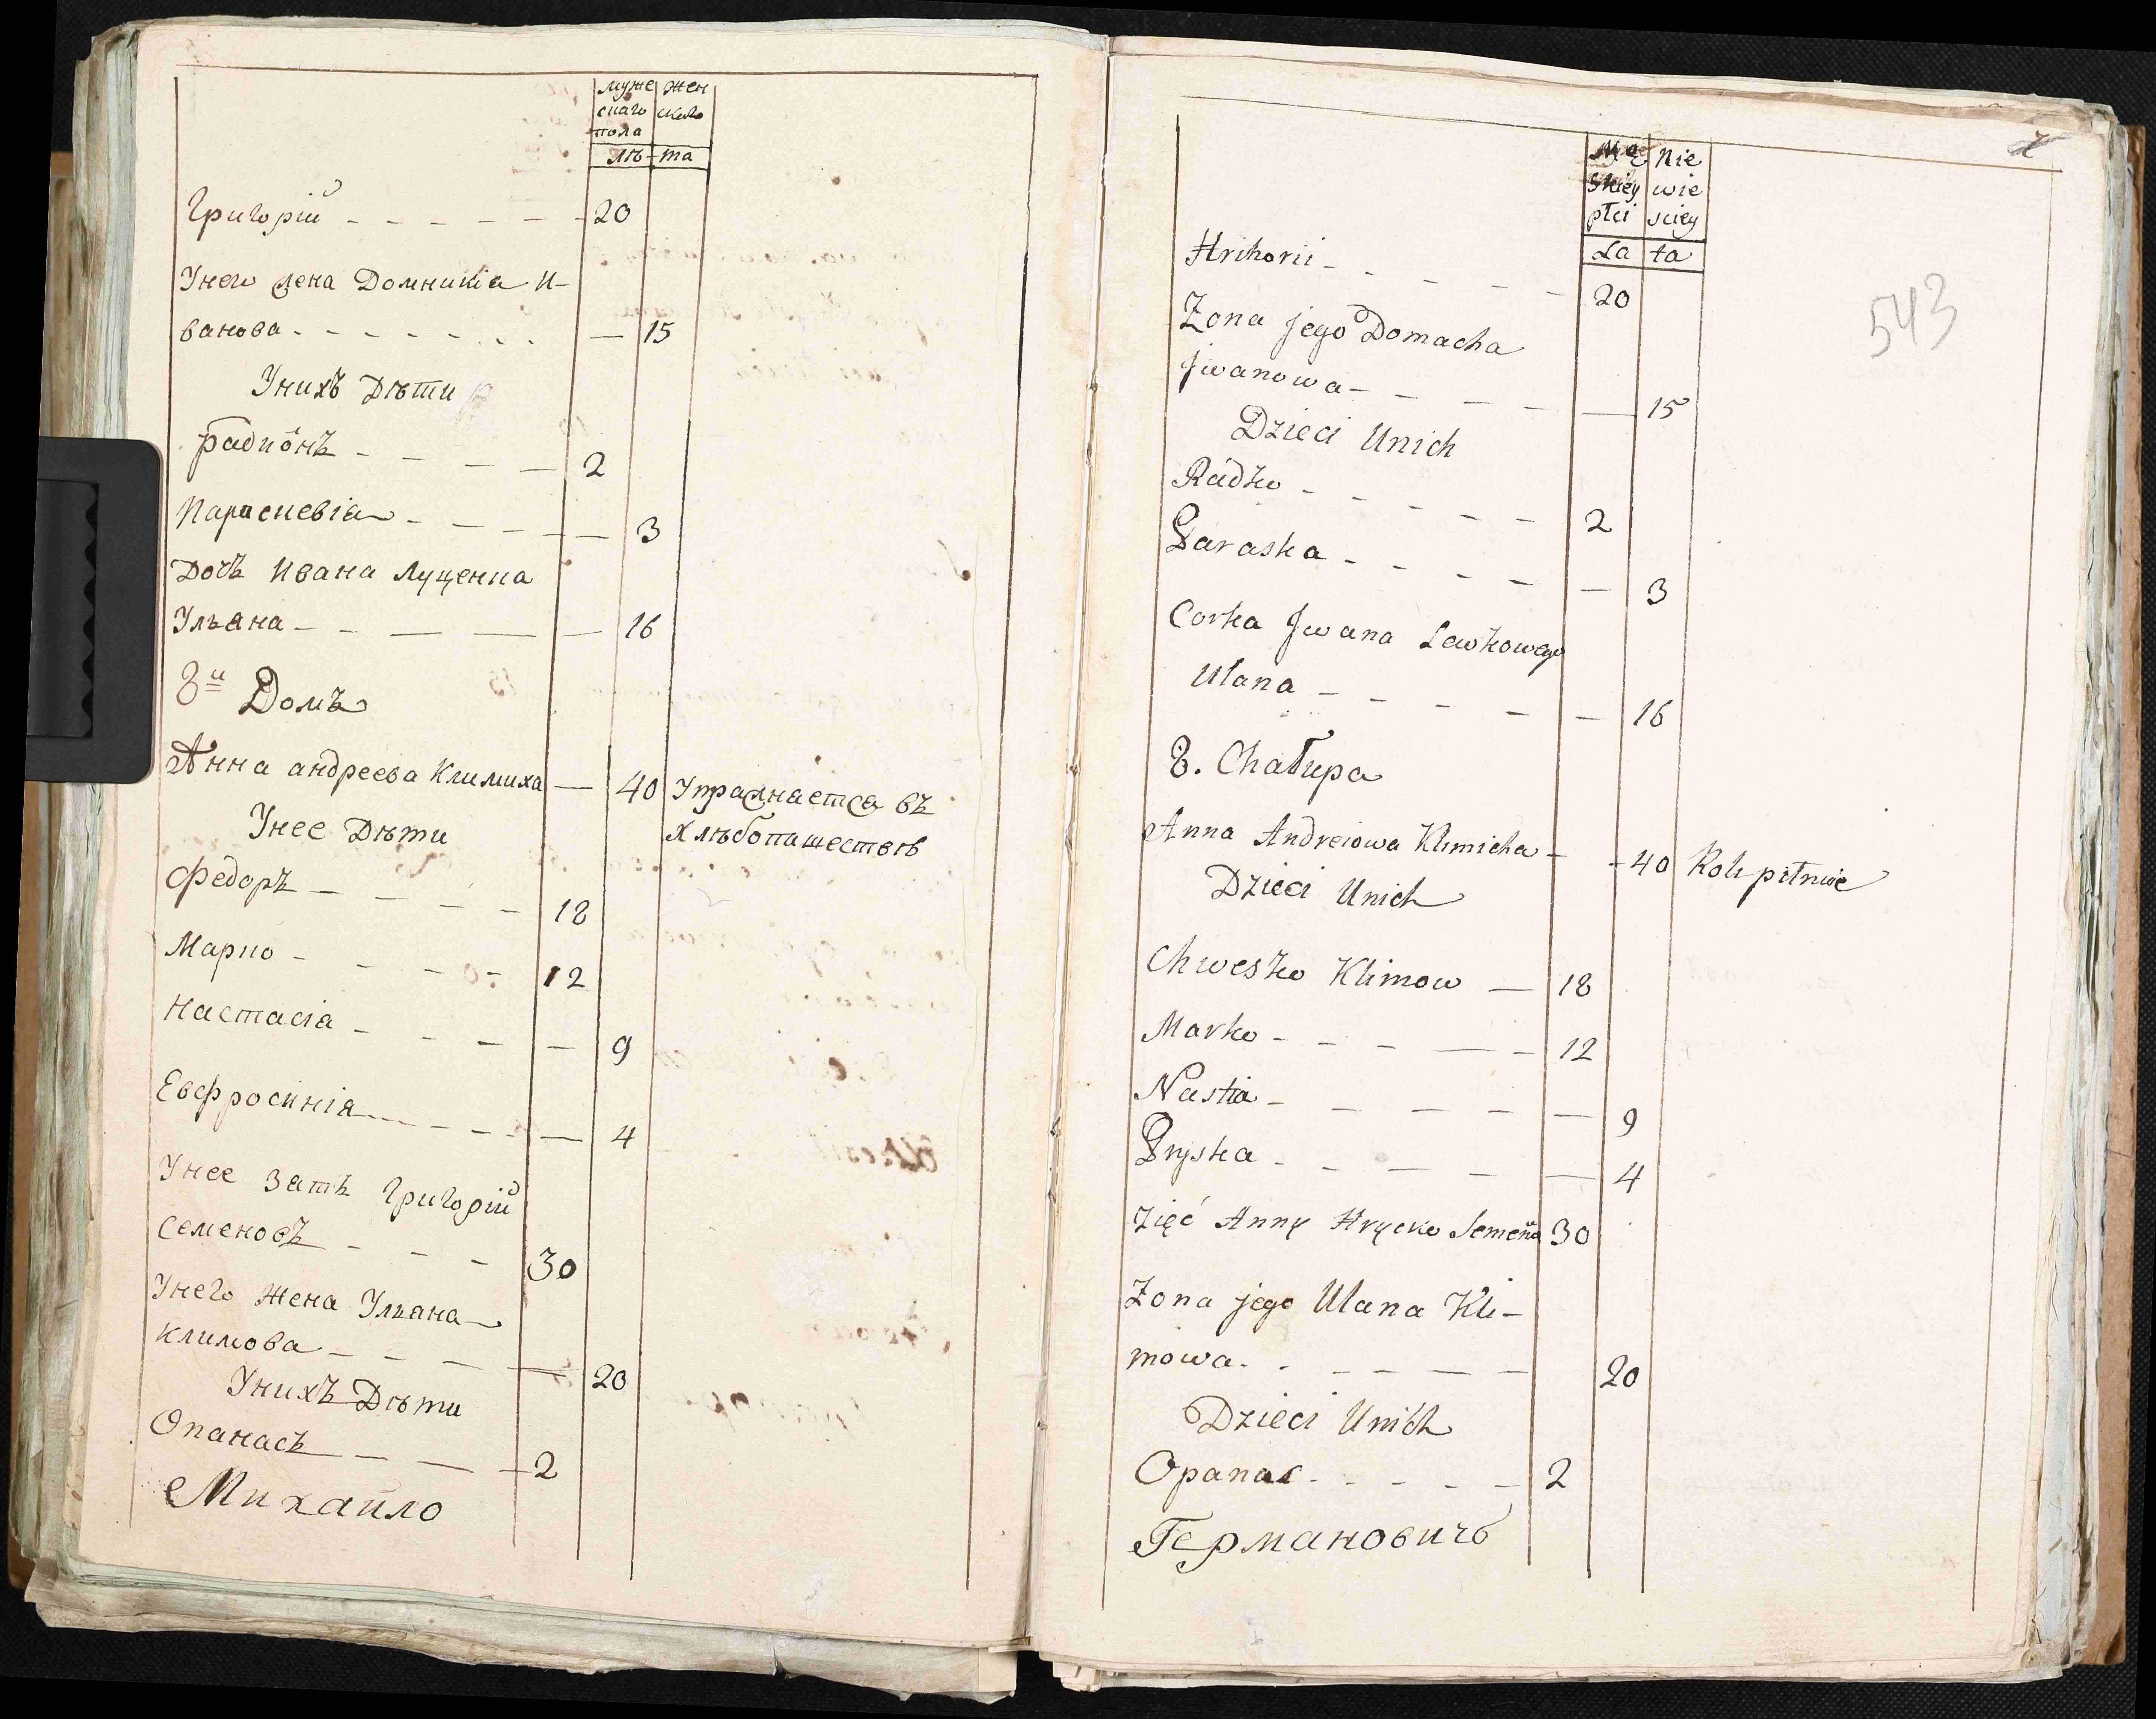 муже жен
скаго скаго
пола
лѣ-та
Григорій - - - - - - 20
Унего жена Домникіа И-
ванова - - - - - - - — 15
Унихъ Дѣти
Радионъ - - - - — 2
Параскевіа - - - - — 3
Дочь Ивана Луценка
Ульана - - — — — 16
8й Домъ
Анна андреева Климиха — 40 Упражнается въ
хлѣбопашествѣ
Унее Дѣти
Федоръ — - - - - 18
Марко - - - - 12
Настасіа - - - - — 9
Евфросиніа - - - - — 4
Унее Зать Григорій
Семеновъ - - - 30
Унего жена Ульана
Климова - - - — 20
Унихъ Дѣти
Опанасъ — - — - 2
Михаило
Mę Nie
skiey wie
płci sciey
La ta
543
Hrihorii - - - - - 20
Zona jego Domacha
Jwanowa - - - - — 15
Dzieci Unich
Radko - - - - - 2
Paraska - - - - — 3
Corka Jwana Lewkowego
Ulana - - - - — 16
8. Chałupa
Anna Andreiowa Klimicha - - 40 Roli pilnuie
Dzieci Unich
Chwesko Klimow — 18
Marko - - - — - 12
Nastia - - - - — 9
Pryska - - - - — 4
Zięć Anny Hrycko Semena 30
Zona jego Ulana Kli-
mowa - - - - - - 20
Dzieci Unich
Opanas - - - - - 2
Германовичъ